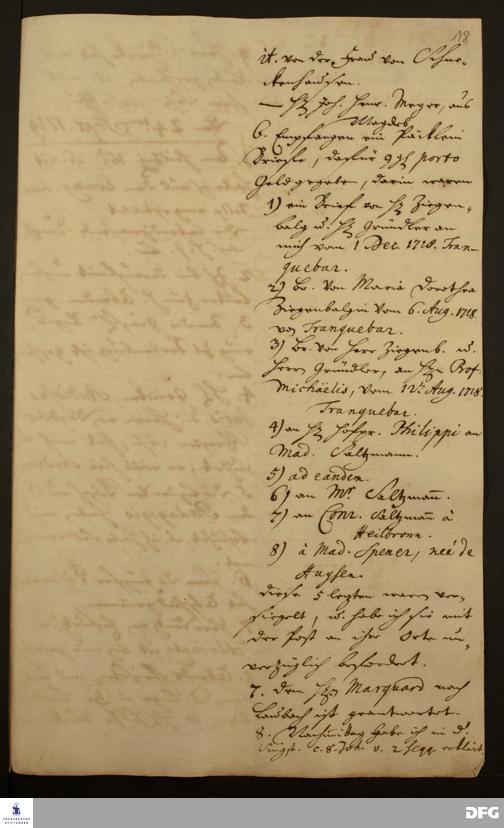 18
it. von der Frau von Schne-
ckenhausen.
— Hr Joh. Henr. Meyer, aus
Magdeb.
6. Empfangen ein Päcklein
Briefe, dafür 9 gl porto
Geld gegeben, darin waren
1) ein Brief von Hr Ziegen-
balg u. Hr Gründler an
mich vom 1 Dec. 1718. Tran-
quebar.
2) Br. von Maria Dorothea
Ziegenbalgin vom 6. Aug. 1718
von Tranquebar.
3) Br. von Herr Ziegenb. u.
Herrn Gründler, an Hrn Prof.
Michaëlis, vom 12t Aug. 1718.
Tranquebar.
4) an Hr Hofpr. Philippi an
Mad. Saltzmann.
5) ad eandem.
6) an Mr Saltzmañ.
7) an Conr. Saltzmañ à
Heilbronn.
8) à Mad. Spener, neé de
Huysen.
diese 5 letzten waren ver-
siegelt, u. habe ich sie mit
der Post an ihre Orte un-
verzüglich befördert.
7. dem Hrn Marquard nach
Laubach ist geantwortet.
8. Nachmittag habe ich in d.
Singst. c. 8. Joh. v. 2 seqq erklärt.
FRANCKESCHE
STIFTUNGEN
DFG